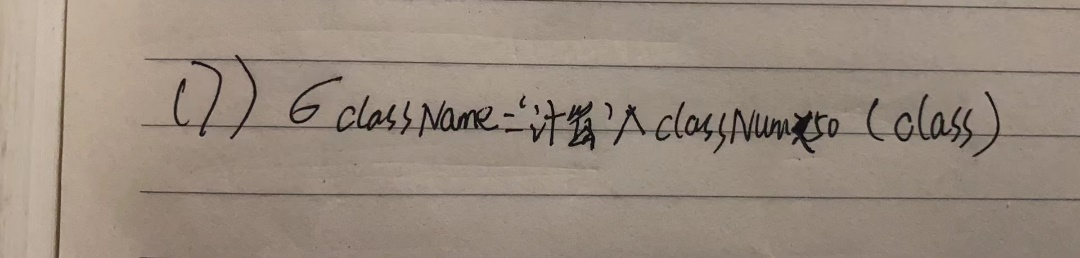 (7) σ className='计算'∧classNum<50 (class)